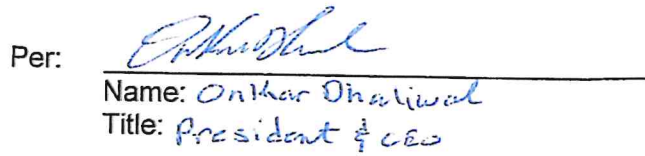 Per:
Name: Onkar Dhaliwal
Title: President & CEO